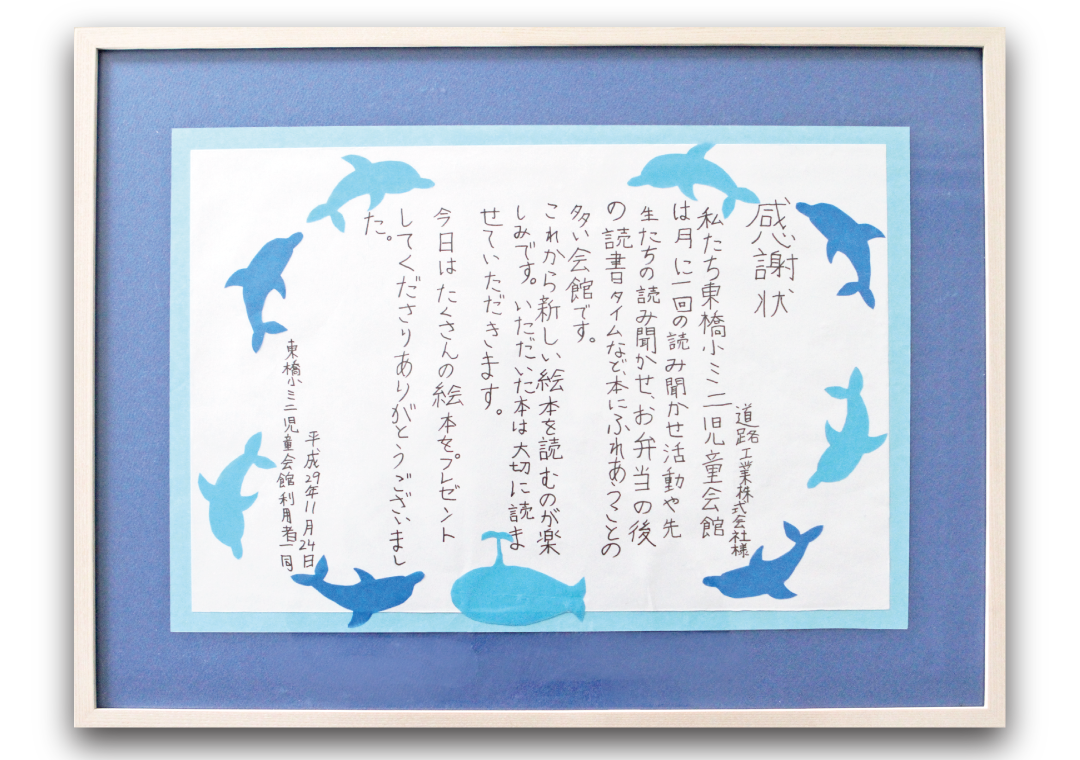 感謝状
道路工業株式会社様
私たち東橋小ミニ児童会館
は月に一回の読み聞かせ活動や先
生たちの読み聞かせ、お弁当の後
の読書タイムなど、本にふれあうことの
多い会館です。
これから新しい絵本を読むのが楽
しみです。いただいた本は大切に読ま
せていただきます。
今日はたくさんの絵本をプレゼント
してくださりありがとうございまし
た。
平成29年11月24日
東橋小ミニ児童会館利用者一同